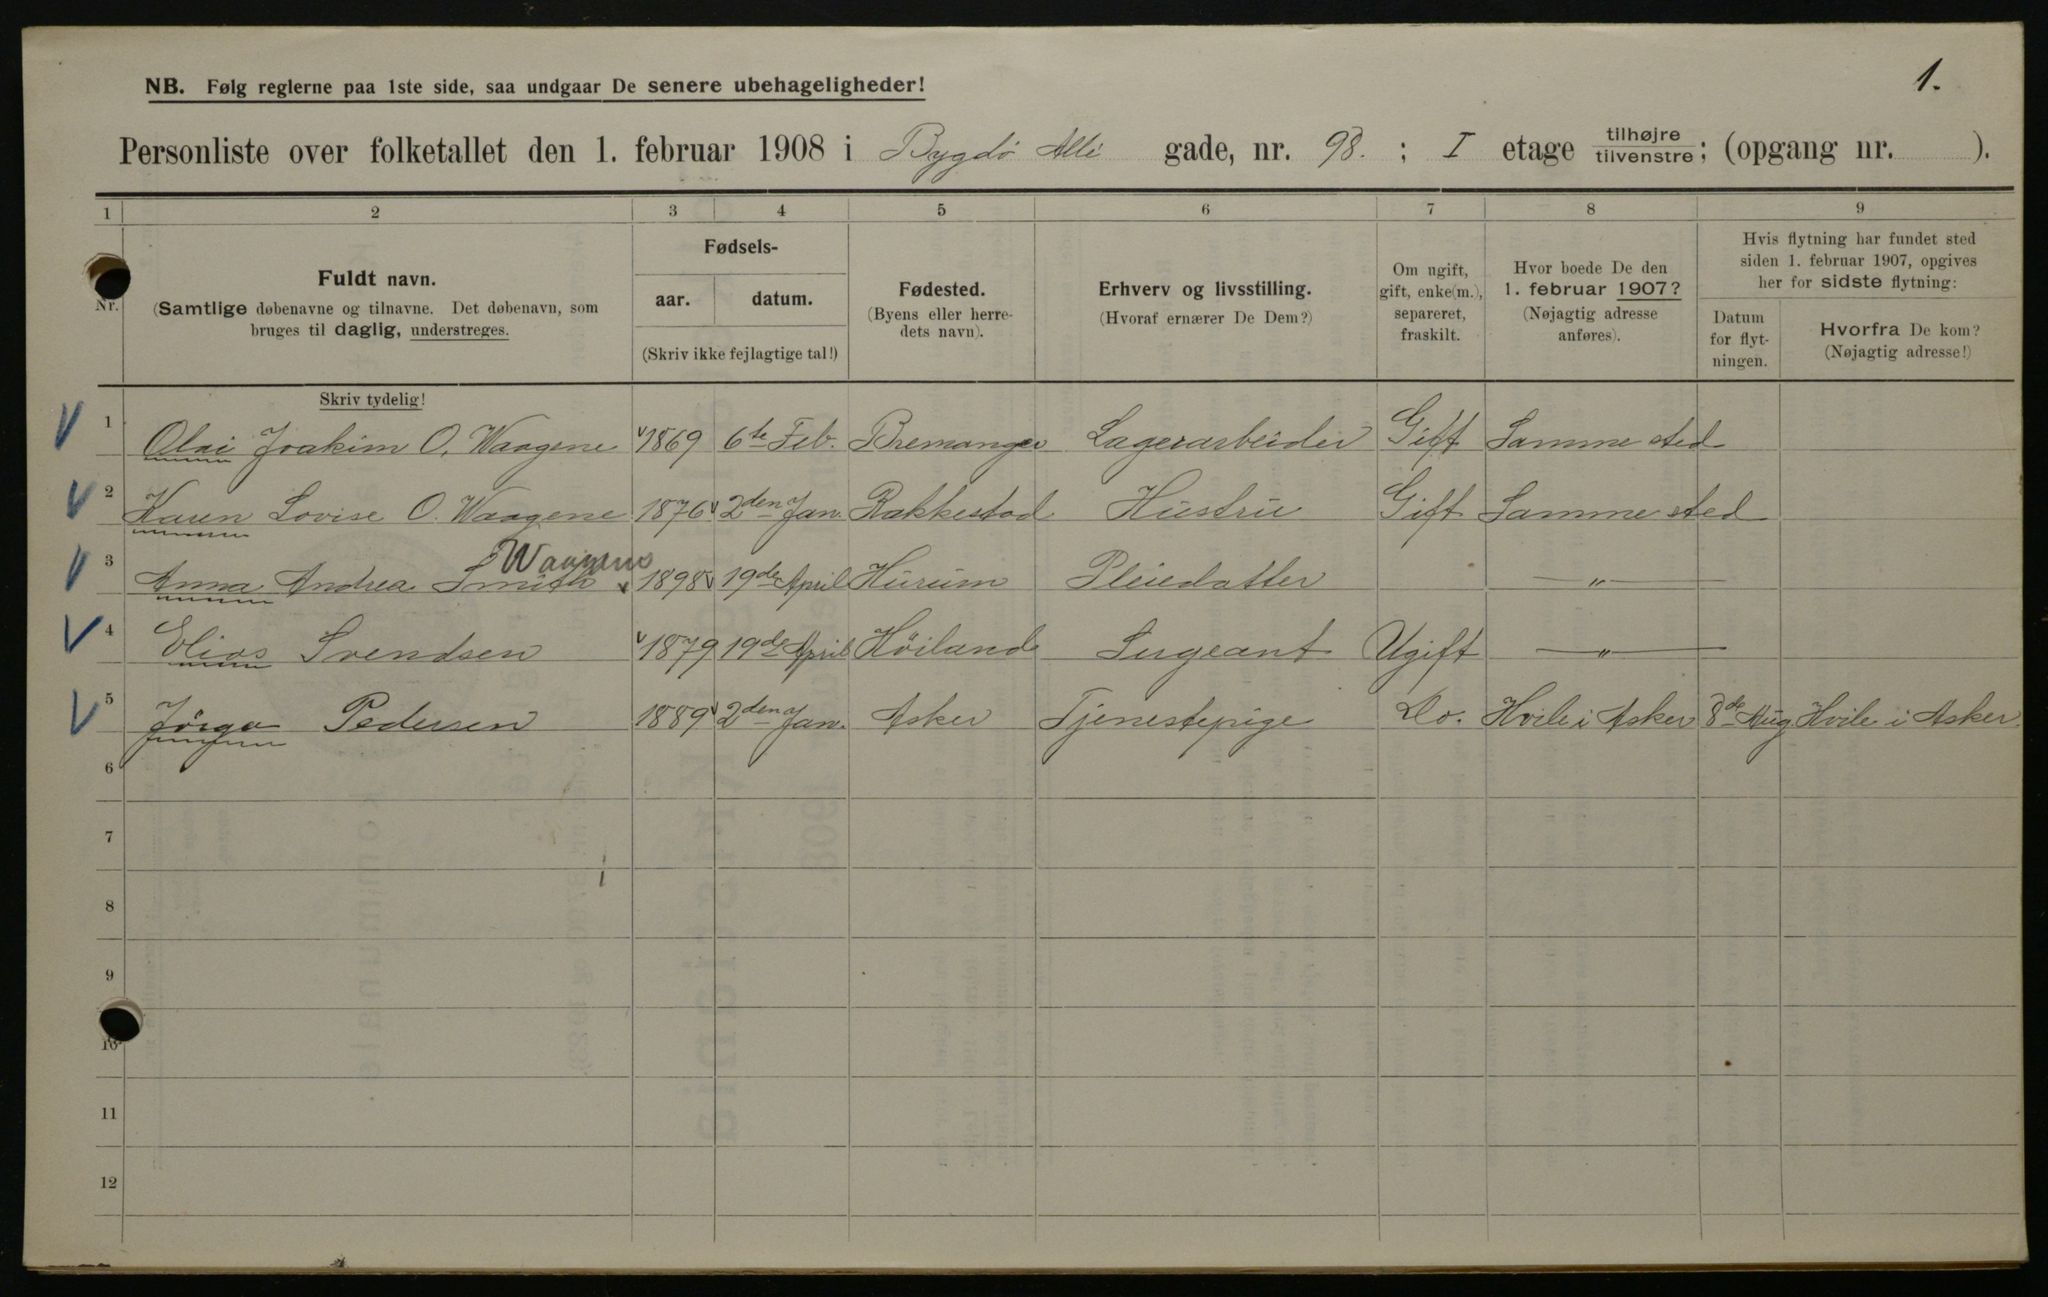 1.
NB. Følg reglerne paa 1ste side, saa undgaar De senere ubehageligheder!
Personliste over folketallet den 1. februar 1908 i Bygdö Allé gade, nr. 98. ; I etage tilhøjre tilvenstre; (opgang nr. ).
1 2 3 4 5 6 7 8 9
Nr.
Fuldt navn.
(Samtlige døbenavne og tilnavne. Det døbenavn, som
bruges til daglig, understreges.
Skriv tydelig!
Fødsels-
aar. datum.
(Skriv ikke fejlagtige tal!)
Fødested.
(Byens eller herre-
dets navn).
Erhverv og livsstilling.
(Hvoraf ernærer De Dem?)
Om ugift,
gift, enke(m.),
separeret,
fraskilt.
Hvor boede De den
1. februar 1907?
(Nøjagtig adresse
anføres).
Hvis flytning har fundet sted
siden 1. februar 1907, opgives
her for sidste flytning:
Datum
for flyt-
ningen.
Hvorfra De kom?
(Nøjagtig adresse!)
1 Olai Joakim O. Waagene 1869 6te Feb. Bremanger Lagerarbeider Gift Samme sted
2 Karen Lovise O. Waagene 1876 2den Jan. Rakkestad Hustru Gift Samme sted
Waagene
3 Anna Andrea Smith 1898 19de April Hurum Pleiedatter — " —
4 Elias Svendsen 1879 19de April Höiland Sergeant Ugift — " —
5 Jörga Pedersen 1889 2den Jan. Asker Tjenestepige Do. Hvile i Asker 8de Aug Hvile i Asker
6
7
8
9
10
11
12